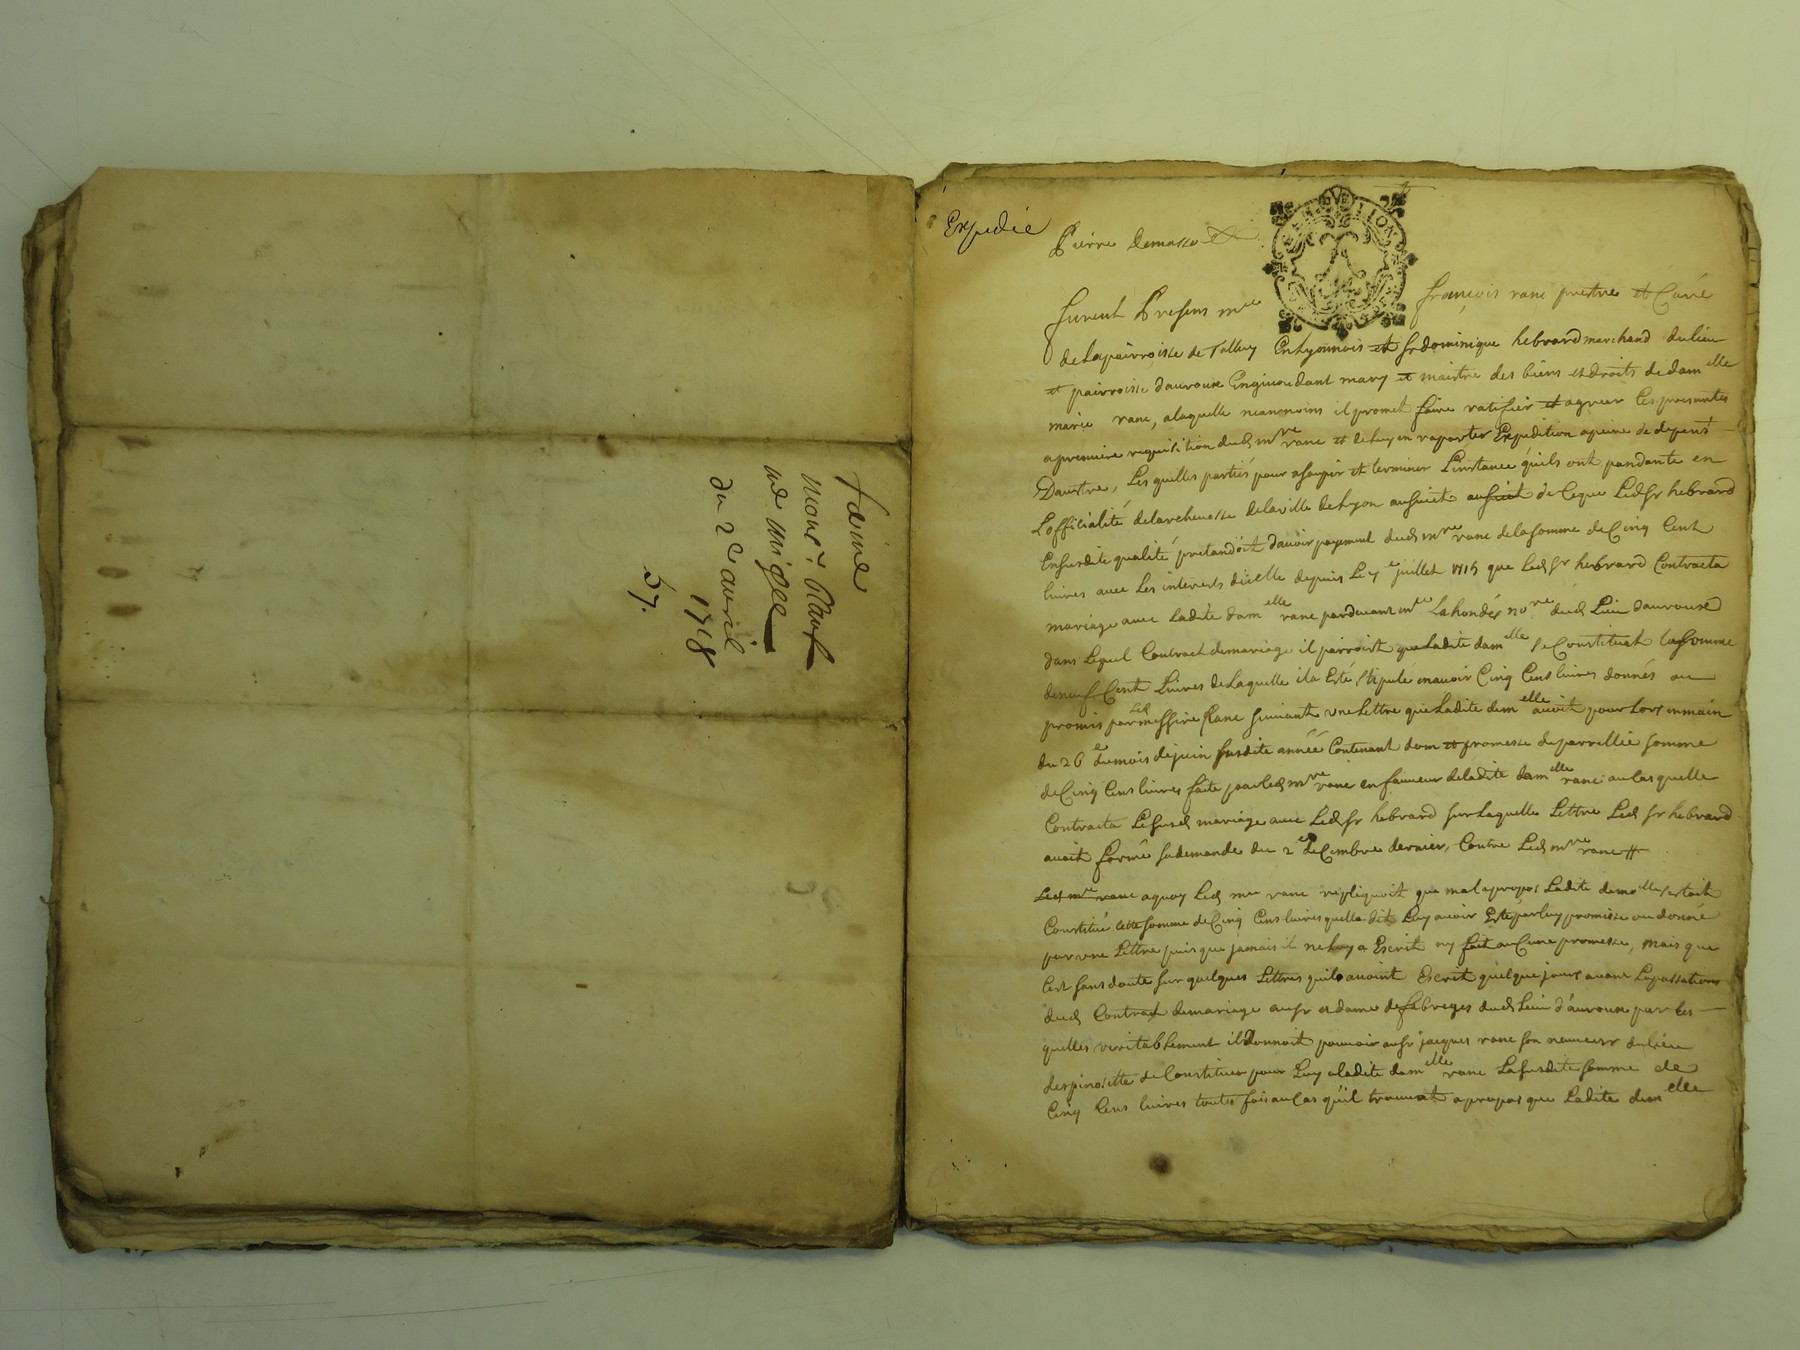 du 2e avril
1718
57.
Expedié
Pierre demasse
furent Presens mre françois ranc prestre et Curé
de la parroisse de Talluy En Lyonnois et sr dominique hebrard marchand du lieu
et parroisse d'auroux En givaudant mary et maistre des biens et droits de damelle
marie ranc, a laquelle neanmoins il promet faire ratifier et agreer les presantes
a premiere requisition dud mre ranc et de luy en raporter Expedition a peine de depens
D'austre, Lesquelles partiés pour asoupir et terminer L'instance quils ont pandante en
L'officialité de larchevesse de la ville de Lyon au sujet au sujet de Ce que Led sr hebrard
En susdite qualité pretandoit d'avoir payement dud mre ranc de la somme de Cinq Cent
livres avec Les interests d'icelle depuis Le 7e juillet 1715 que led sr hebrard Contracta
mariage avec Ladite damelle ranc pardevant me Lahondés nore dud Lieu d'auroux
dans Lequel Contract de mariage il parroist que Ladite damelle se Constituat la somme
de neuf Cent Livres de Laquelle il a Esté stipulé en avoir Cinq Cens livres donnés ou
promis par led messire Ranc suivant une Lettre que Ladite demelle avoit pour Lors en main
du 26e du mois de juin susdite année Contenant dom et promesse de parreillie somme
de Cinq Cens livres faite par led mre ranc en faveur de ladite damelle ranc au Cas quelle
Contracta Le susd mariage avec Led sr hebrard sur Laquelle Lettre Led sr hebrard
avoit formé sa demande du 2e deCembre dernier, Contre Led mre ranc
Led mre ranc a quoy Led mre ranc repliquoit que mal a propos Ladite demoelle s'estoit
Constitué Cette somme de Cinq Cens livres quelle dit Luy avoir Esté par luy promisse ou donné
par une Lettre puis que jamais il ne Luy a Escrit ny fait auCune promesse, mais que
Cest sans doute sur quelques Lettres quil avoint Escrit quelque jours avant La passation
dud Contract de mariage au sr et dame de fabreges dud Lieu d'auroux par les
quelles veritablement il donnoit pouvoir au sr jacques ranc son neuveur du lieu
despinosette de Constituer pour Luy a ladite damelle ranc La susdite somme de
Cinq Cens livres toutes fois au Cas qu'il trouvat a propos que Ladite demelle